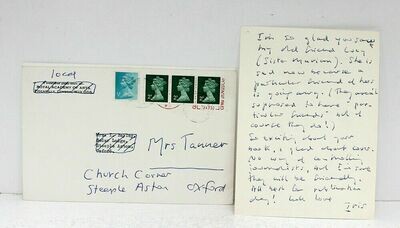 local
ROYAL ACADEMY OF ARTS
Mrs Tanner
Church Corner
Steeple Aston
Oxford
I'm so glad you saw
my old friend Lucy
(Sister Marian). She is
sad now because a
particular friend of hers
is going away. (They aren't
supposed to have 'par-
ticular friends' but of
course they do!)
So exciting about your
book, & glad about
No way of controlling
journalists, but I'm sure
they will be friendly.
All best for publication
day! with love
Iris